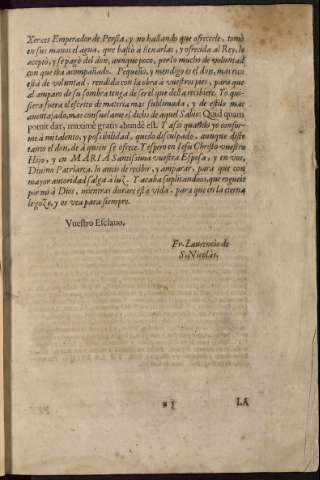 Xerces Emperador de Persia, y no hallando que ofrecerle, tomò
en sus manos el agua, que bastò à llenarlas, y ofrecida al Rey, lo
acceptò, y se pagò del don, aunque poco, por lo mucho de voluntad
con que iba acompañado. Pequeño, y mendigo es el don, mas rico
està de voluntad, rendida con la obra à vuestros pies, para que
al amparo de su sombra tenga de ser el que della recibiere. Yo qui-
siera fuera el escrito de materia mas sublimada, y de estilo mas
aventajado, mas consuelame el dicho de aquel Sabio: Quid quam
potuit dat, maximè gratis abundè est. Y assi quando yo confor-
me à mi talento, y possibilidad, quedo disculpado, aunque diste
tanto el don, de à quien se ofrece. Y espero en Iesu Christo vuestro
Hijo, y en MARIA Santissima vuestra Esposa, y en vos,
Divino Patriarca, lo aveis de recibir, y amparar, para que con
mayor autoridad salga à luz. Y acaba suplicandoos, que rogueis
por mi à Dios, mientras durare esta vida, para que en la eterna
le goze, y os vea para siempre.
Vuestro Esclavo.
Fr. Laurencio de
S. Nicolàs.
LA